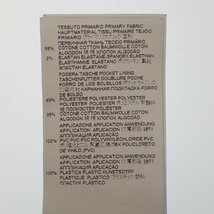 TESSUTO PRIMARIO PRIMARY FABRIC
HAUPTMATERIAL TISSU PRIMAIRE TEJIDO
PRIMARIO
ПЕРВИЧНАЯ ТКАНЬ TECIDO PRIMÁRIO
98% COTONE COTTON BAUMWOLLE COTON
ALGODON 綿 棉 ХЛОПОК ALGODÃO
2% ELASTAN ELASTANE SPANDEX ELASTHAN
ELASTHANNE ELASTANO
ELASTANO
FODERA TASCHE POCKET LINING
TASCHENFUTTER DOUBLURE POCHE
FORRO DE LOS BOLSILLOS
КАРМАННАЯ ПОДКЛАДКА FORRO
DE BOLSO
65% POLIESTERE POLYESTER POLYESTER
POLYESTER POLIESTER
35% COTONE COTTON BAUMWOLLE COTON
ALGODON 綿 棉 ХЛОПОК ALGODÃO
APPLICAZIONE APPLICATION ANWENDUNG
APPLICATION APLICACION
100% PVC PVC POLYVINYLCHLORID PVC
DE VINILO (PVC)
APPLICAZIONE APPLICATION ANWENDUNG
APPLICATION APLICACION
100% PLASTICA PLASTIC KUNSTSTOFF
PLASTIQUE PLASTICO
ПЛАСТИК PLASTICO